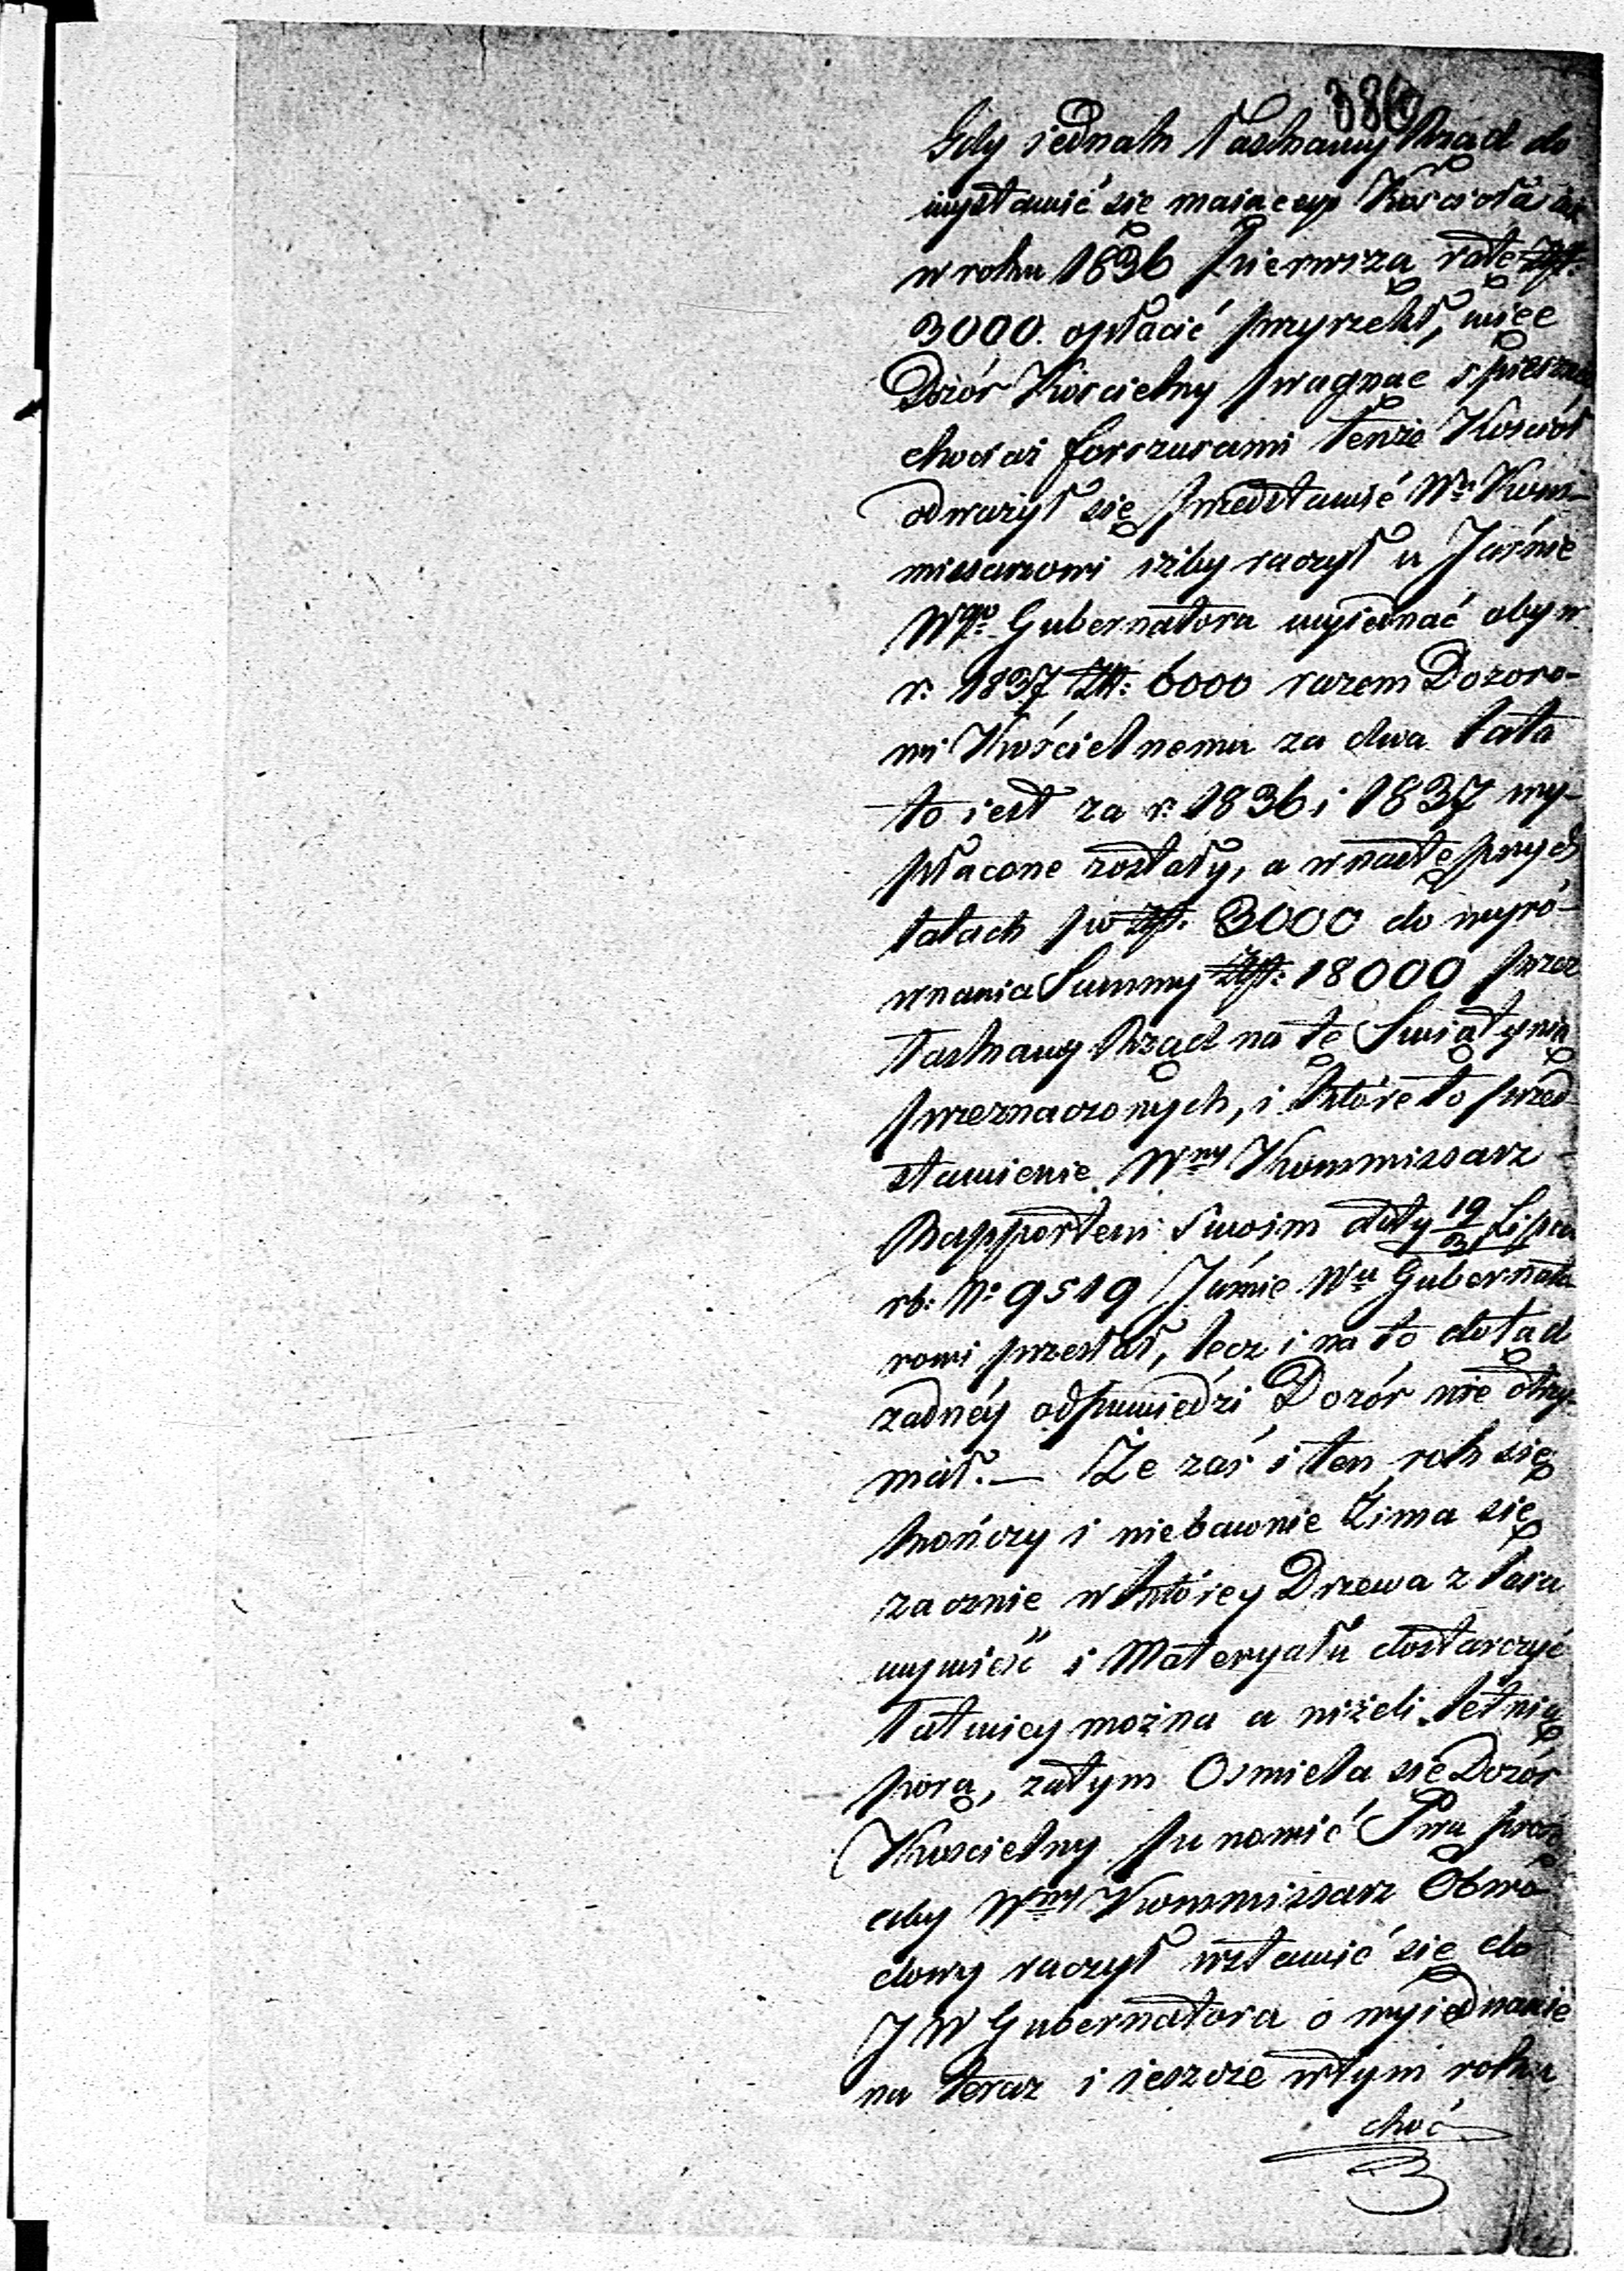 386
Gdy iednak łaskawy Rząd do
wystawić się maiącego Kościoła
w roku 1836 pierwszą ratę Złp.
3000. opłacić przyrzekł, więc
Dozór Kościelny pragnąc
chociaż forszusami tenże Kościoł
odważył się przedstawić Wu Kom-
missarzowi iżby raczył u Jaśnie
Wgo Gubernatora wyiednać aby w
r: 1837 Złp: 6000 razem Dozoro-
wi Kościelnemu za dwa lata
to iest za r: 1836 i 1837 wy-
płacone zostały, a w następnych
latach po Złp: 3000 do wyró-
wnania Summy Złp: 18000 przez
łaskawy Rząd na tę Swiątynią
przeznaczonych, i któreto przed
stawienie Wny Kommissarz
Rapportem Swoim daty 19/31 Lipca
rb: No 9519 Jaśnie Wu Gubernato
rowi przesłał, lecz i na to dotąd
żadnéy odpowiedzi Dozór nie otrzy-
mał. — Że zaś i ten rok się
kończy i niebawnie Zima się
zacznie w którey Drzewa z lasu
wywieść i Materyału dostarczyć
łatwiey można a niżeli letnią
porą, zatym Osmiela się Dozór
Kościelny ponowić Swą proź
aby Wny Kommissarz Obwo
dowy raczył wstawić się do
JW Gubernatora o wyiednanie
na teraz i ieszcze w tym roku
choć